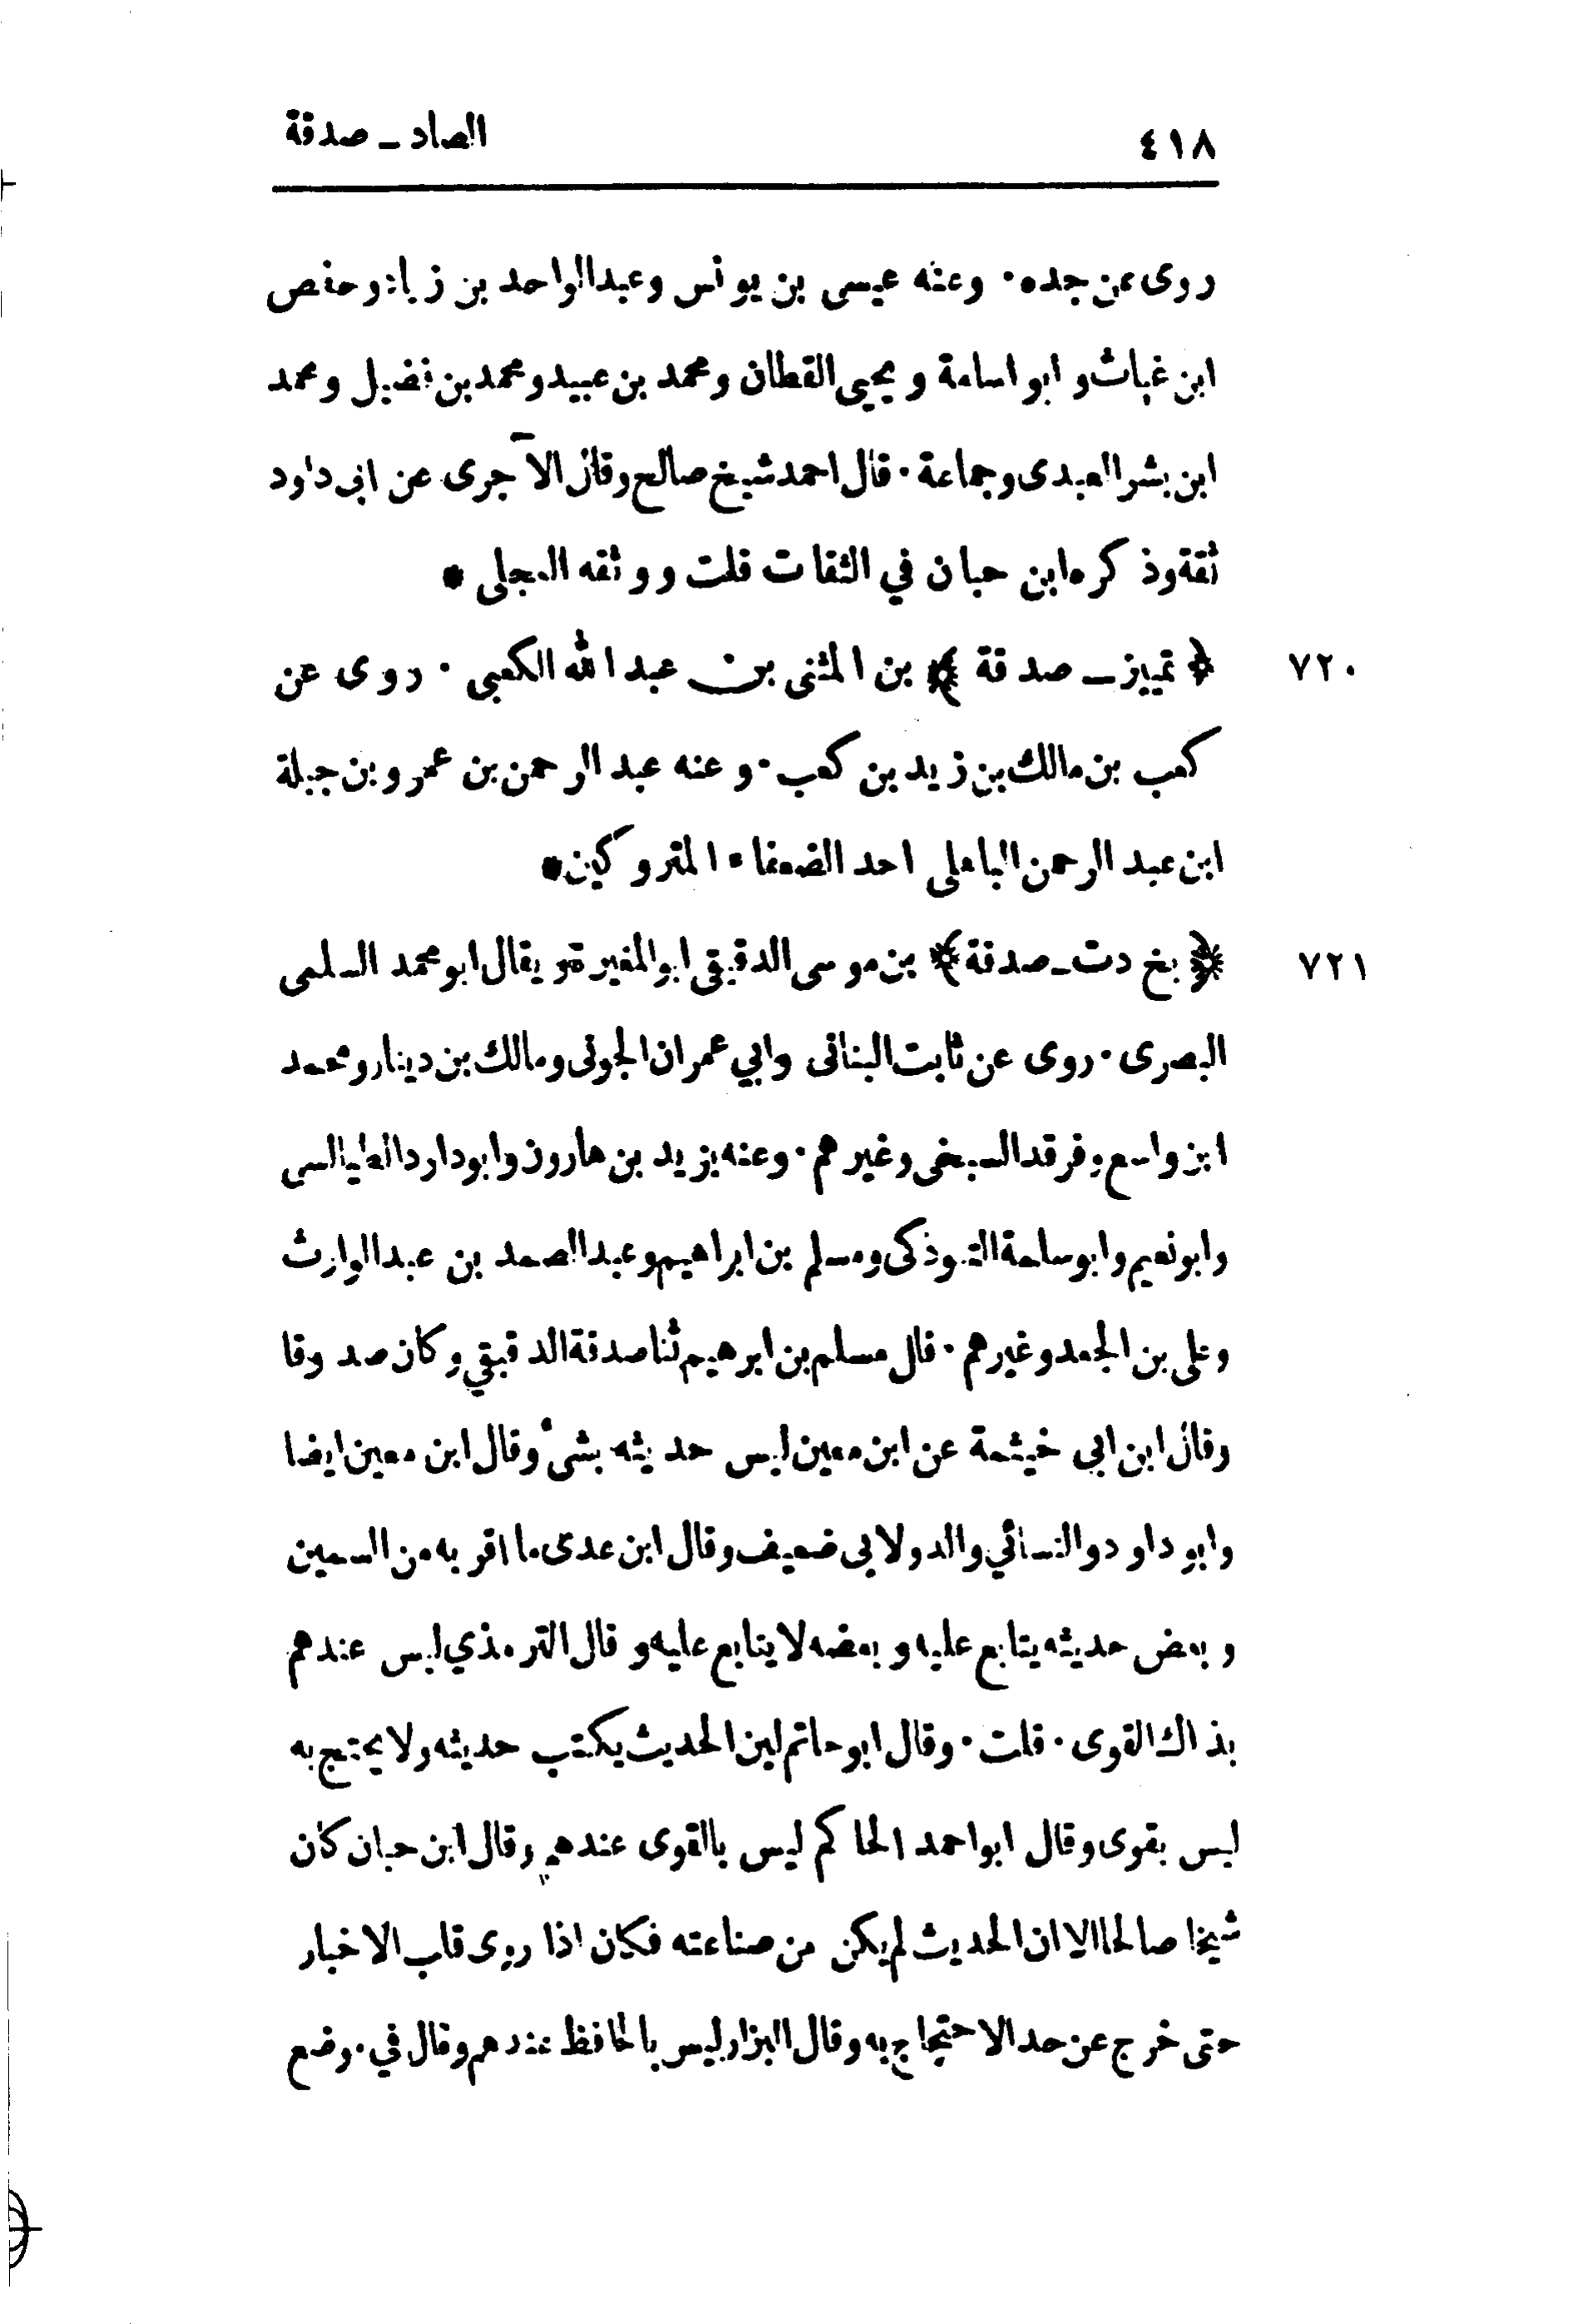 ٤١٨
الصاد ـ صدقة
روى عن جده ٠ وعنه عيسى بن يونس وعبدالواحد بن زياد وحفص
ابن غياث و ابو اسامة و يحيى القطان ومحمد بن عبيد ومحمد بن فضيل ومحمد
ابن بشر العبدى وجماعة ٠ قال احمد شيخ صالح وقال الآجرى عن ابى داود
ثقة وذكره ابن حبان في الثقات قلت ووثقه العجلى *
٧٢٠
﴿ تمييز ـ صدقة ﴾ بن المثنى بن عبد الله الكعبى ٠ روى عن
كعب بن مالك بن زيد بن كعب ٠ وعنه عبد الرحمن بن عمرو بن جبلة
ابن عبد الرحمن الباهلى احد الضعفاء المتروكين *
٧٢١
﴿ بخ دت ـ صدقة ﴾ بن موسى الدقيقى ابوالمغيرة ويقال ابو محمد السلمى
البصرى ٠ روى عن ثابت البنانى وابي عمران الجونى ومالك بن دينار ومحمد
ابن واسع وفرقد السبخى وغيرهم ٠ وعنه يزيد بن هارون وابوداود الطيالسى
وابونعيم وابوسلمة التبوذكى ومسلم بن ابراهيم وعبدالصمد بن عبدالوارث
وعلى بن الجعد وغيرهم ٠ قال مسلم بن ابرهيم ثنا صدقة الدقيقي وكان صدوقا
وقال ابن ابى خيثمة عن ابن معين ليس حديثه بشئ وقال ابن معين ايضا
وابو داود والنسائي والدولابى ضعيف وقال ابن عدى ما اقر به من السمين
وبعض حديثه يتابع عليه وبعضه لا يتابع عليه وقال الترمذي ليس عندهم
بذاك القوى ٠ قلت ٠ وقال ابو حاتم لين الحديث يكتب حديثه ولا يحتج به
ليس بقوى وقال ابو احمد الحاكم ليس بالقوى عندهم وقال ابن حبان كان
شيخا صالحا الا ان الحديث لم يكن من صناعته فكان اذا روى قلب الاخبار
حتى خرج عن حد الاحتجاج به وقال البزار ليس بالحافظ عندهم وقال في موضع